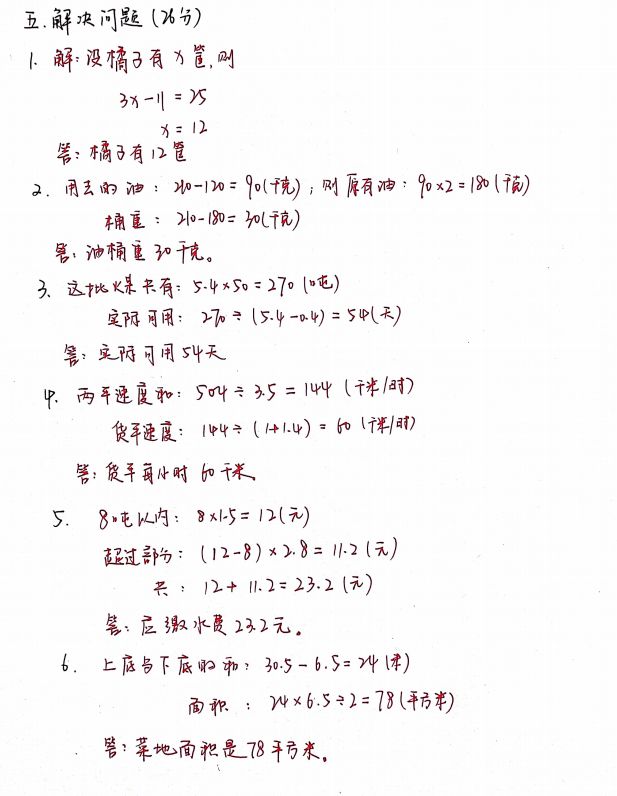 五.解决问题(26分)
1. 解:设橘子有x筐,则
3x-11=25
x=12
答:橘子有12筐
2. 用去的油:210-120=90(千克);则原有油:90×2=180(千克)
桶重:210-180=30(千克)
答:油桶重30千克。
3. 这批煤共有:5.4×50=270(吨)
实际可用:270÷(5.4-0.4)=54(天)
答:实际可用54天
4. 两车速度和:504÷3.5=144(千米/时)
货车速度:144÷(1+1.4)=60(千米/时)
答:货车每小时60千米。
5. 8吨以内:8×1.5=12(元)
超过部分:(12-8)×2.8=11.2(元)
共:12+11.2=23.2(元)
答:应缴水费23.2元。
6. 上底与下底的和:30.5-6.5=24(米)
面积:24×6.5÷2=78(平方米)
答:菜地面积是78平方米。